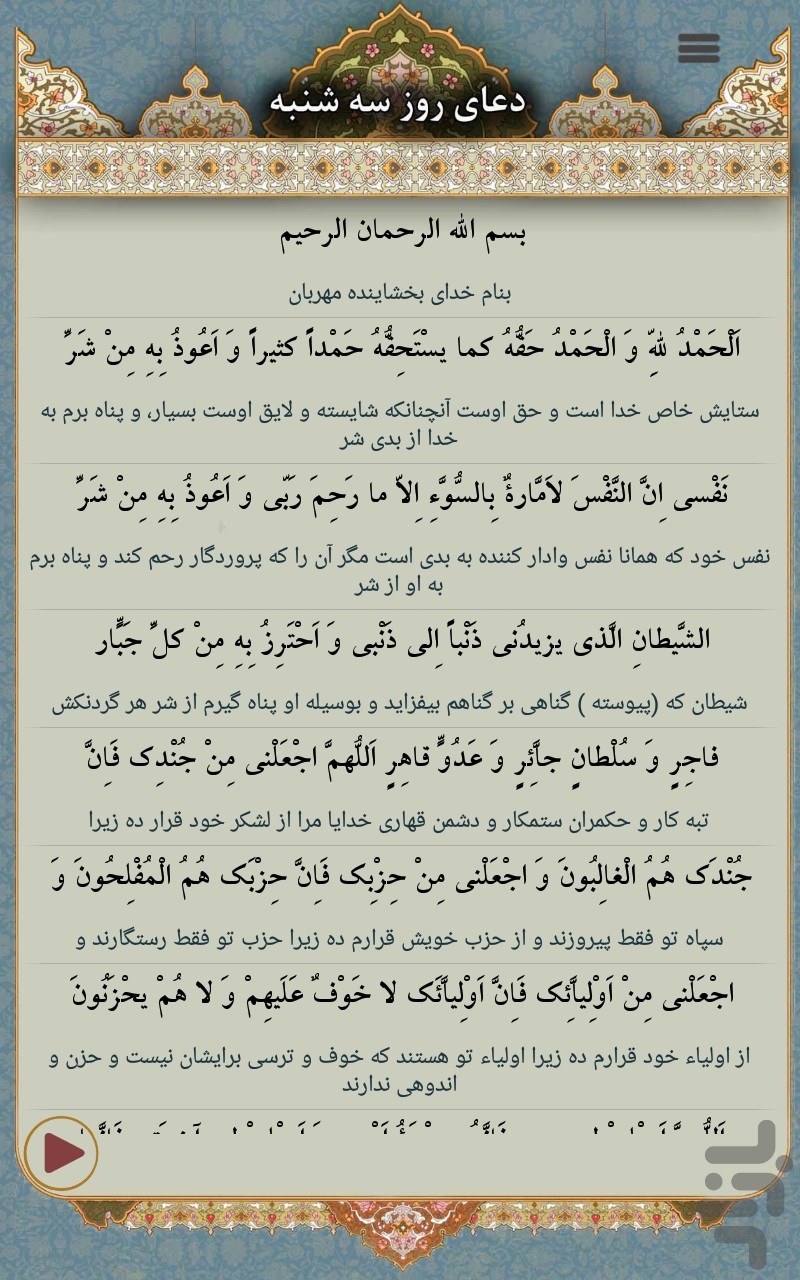 دعای روز سه شنبه
بسم الله الرحمان الرحیم
بنام خدای بخشاینده مهربان
اَلْحَمْدُ لِلّهِ وَ الْحَمْدُ حَقُّهُ کما یسْتَحِقُّهُ حَمْداً کثیراً وَ اَعُوذُ بِهِ مِنْ شَرِّ
ستایش خاص خدا است و حق اوست آنچنانکه شایسته و لایق اوست بسیار، و پناه برم به
خدا از بدی شر
نَفْسی اِنَّ النَّفْسَ لاَمَّارةٌ بِالسُّوَّءِ اِلاّ ما رَحِمَ رَبّی وَ اَعُوذُ بِهِ مِنْ شَرِّ
نفس خود که همانا نفس وادار کننده به بدی است مگر آن را که پروردگار رحم کند و پناه برم
به او از شر
الشَّیطانِ الَّذی یزیدُنی ذَنْباً اِلی ذَنْبی وَ اَحْتَرِزُ بِهِ مِنْ کلِّ جَبّارٍ
شیطان که (پیوسته ) گناهی بر گناهم بیفزاید و بوسیله او پناه گیرم از شر هر گردنکش
فاجِرٍ وَ سُلْطانٍ جآئِرٍ وَ عَدُوٍّ قاهِرٍ اَللّهمَّ اجْعَلْنی مِنْ جُنْدِک فَاِنَّ
تبه کار و حکمران ستمکار و دشمن قهاری خدایا مرا از لشکر خود قرار ده زیرا
جُنْدَک هُمُ الْغالِبُونَ وَ اجْعَلْنی مِنْ حِزْبِک فَاِنَّ حِزْبَک هُمُ الْمُفْلِحُونَ وَ
سپاه تو فقط پیروزند و از حزب خویش قرارم ده زیرا حزب تو فقط رستگارند و
اجْعَلْنی مِنْ اَوْلِیآئِک فَاِنَّ اَوْلِیآئَک لا خَوْفٌ عَلَیهِمْ وَ لا هُمْ یحْزَنُونَ
از اولیاء خود قرارم ده زیرا اولیاء تو هستند که خوف و ترسی برایشان نیست و حزن و
اندوهی ندارند